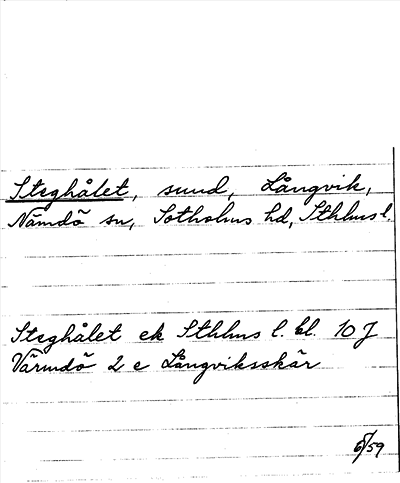 Steghålet, sund, Långvik,
Nämdö sn, Sotholms hd, Sthlms l.
Steghålet ek Sthlms l. bl. 10 J
Värmdö 2 e Långviksskär
6/59